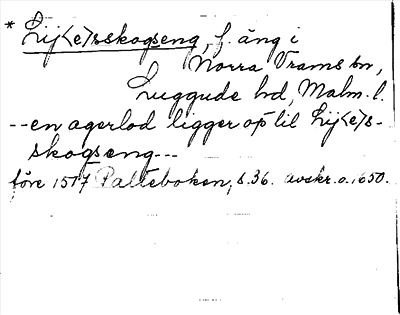 * Lij<e>rskogseng, f. äng i
Norra Vrams sn,
Luggude hd, Malm. l.
--en agerlod ligger op til Lij<e>s-
skogseng---
före 1517 Palteboken, s.36. avskr.o.1650.